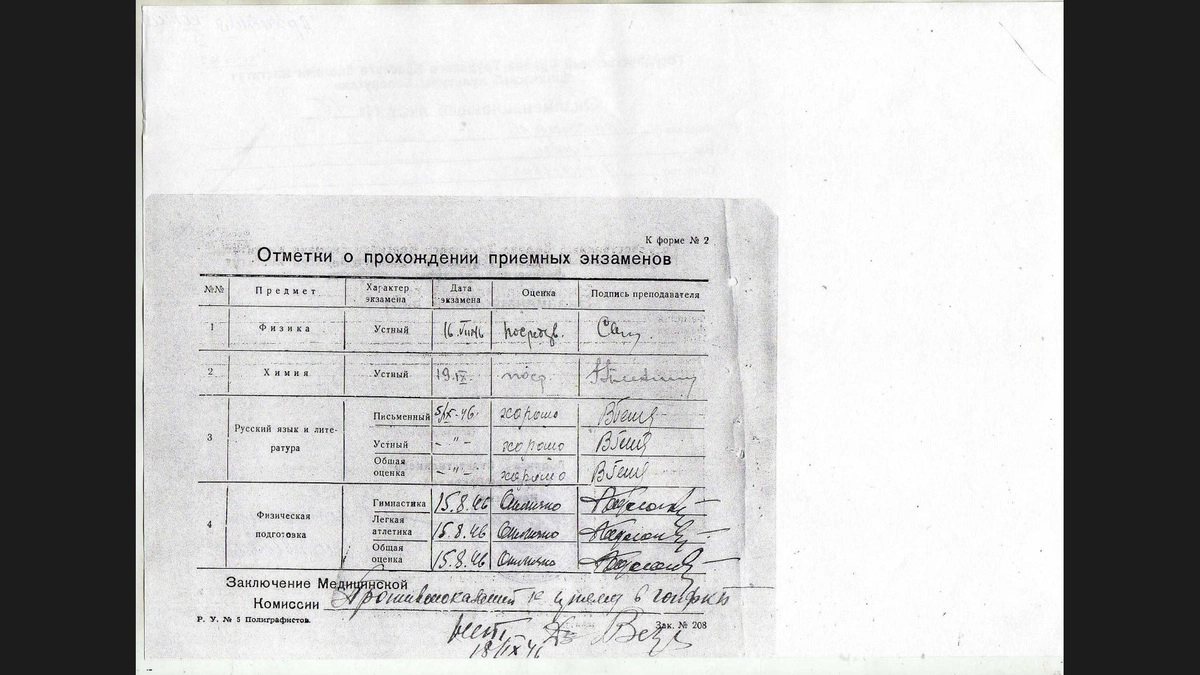 К форме № 2
Отметки о прохождении приемных экзаменов
№№ Предмет Характер экзамена Дата экзамена Оценка Подпись преподавателя
1 Физика Устный 16.VIII46 посредств.
2 Химия Устный 19.IX поср.
3 Русский язык и лите-
ратура
Письменный 5/IX-46. хорошо
Устный - " - хорошо
Общая оценка - " - хорошо
4 Физическая
подготовка
Гимнастика 15.8.46 Отлично
Легкая атлетика 15.8.46 Отлично
Общая оценка 15.8.46 Отлично
Заключение Медицинской
Комиссии Противопоказаний к приему в гоифкб
нет.
Р. У. № 5 Полиграфистов. Зак. № 208
18/IX 46